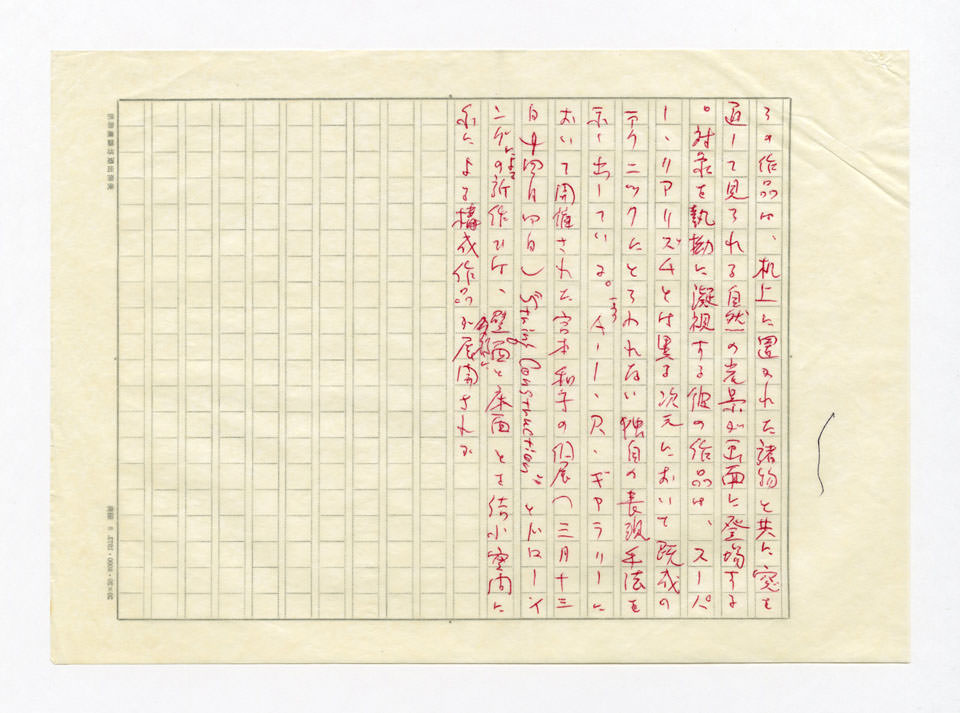 の作品は、机上に置かれた諸物と共に窓を
通して見られる自然の光景が画面に登場する
。対象を執拗に凝視する彼の作品は、スーパ
ー・リアリズムとは異る次元において既成の
テクニックにとらわれない独自の表現手法を
示している。一方
おいて開催された宮本和子の個展（三月十三
日～四月四日）〝String Construction〟とドローイ
ングの新作では、壁面と床面とを結ぶ空間に
糸による構成作品が展開された